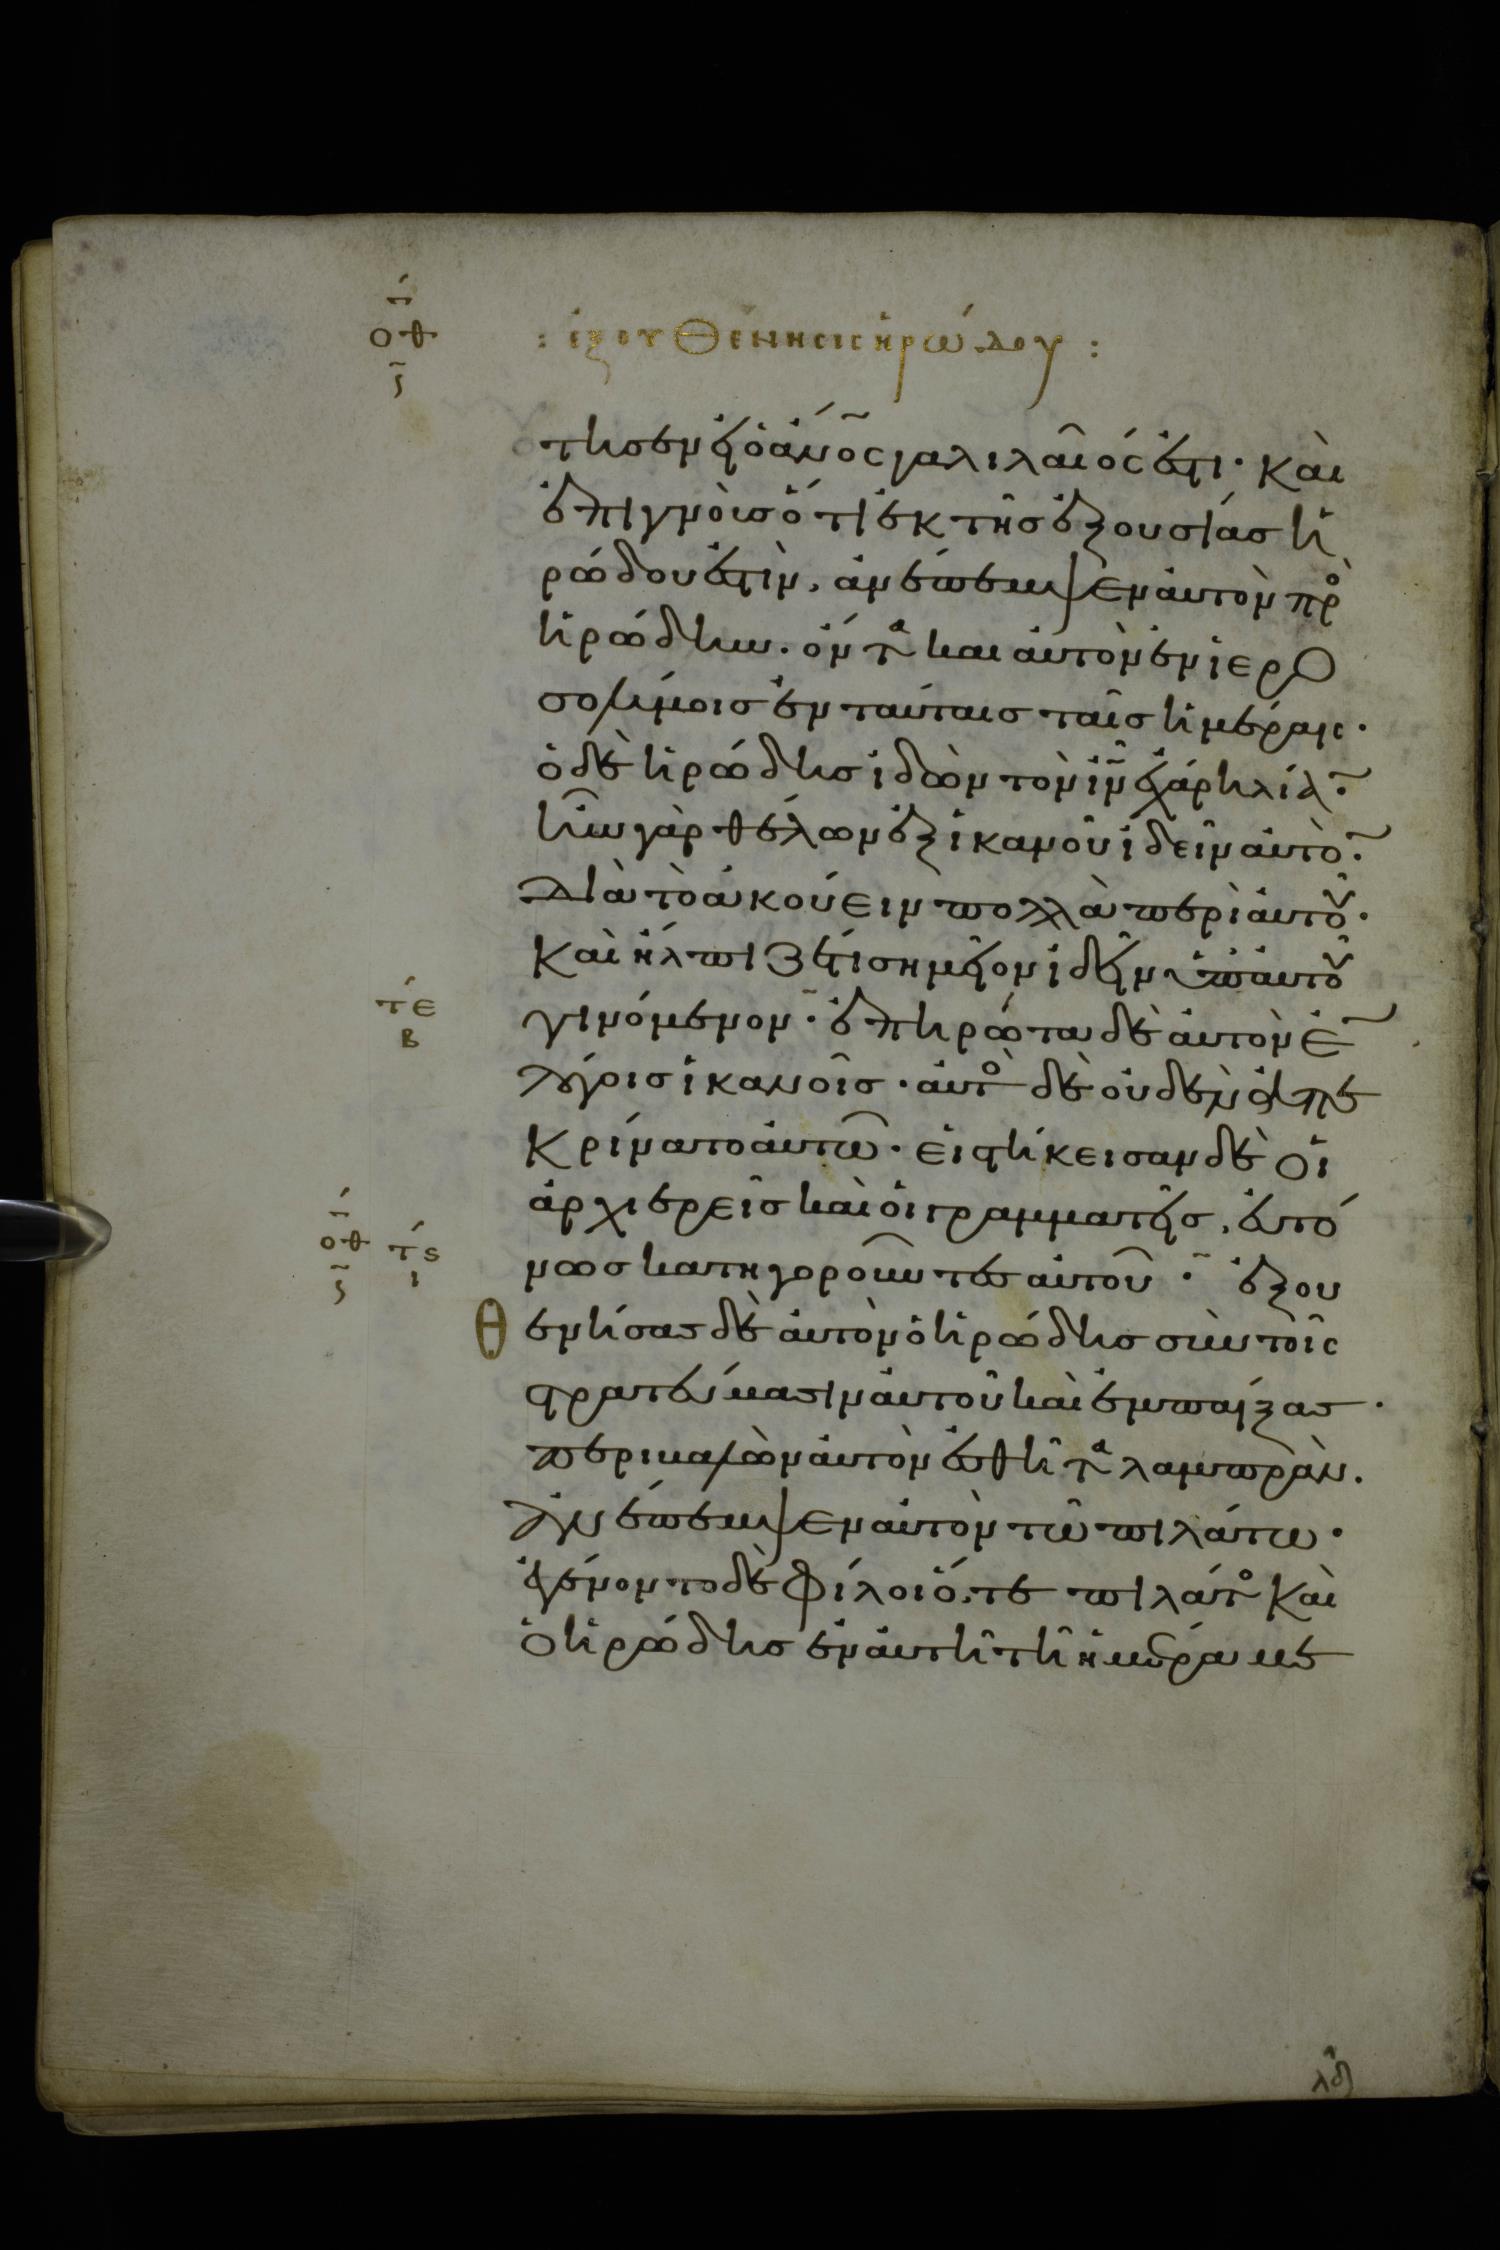 οθ
ϛ
: ἐξουθένησις ἡρώδου :
τησεν εἰ ὁ ἄνος γαλιλαῖος ἐστι· καὶ
ἐπιγνοὺσ ὅτι ἐκ τῆσ ἐξουσίασ ἡ
ρώδου ἐστὶν, ἀνέπεμψεν αὐτὸν πρὸ
ἡρώδην. ὄντα καὶ αὐτὸν ἐν ἱερο
σολύμοισ ἐν ταύταισ ταῖσ ἡμέραις·
ὁ δὲ ἡρώδησ ἰδὼν τὸν ιν ἐχάρη λίαν·
ἦν γὰρ θέλων ἐξ ἱκανοῦ ἰδεῖν αὐτὸν·
Διὰ τὸ ἀκούειν πολλὰ περὶ αὐτοῦ·
Καὶ ἤλπιζέ τι σημεῖον ἰδεῖν ὑπ αὐτοῦ
τε
β
γινόμενον· ἐπηρώτα δὲ αὐτὸν ἐν
λόγοισ ἱκανοῖσ· αὐτὸ δὲ οὐδὲν ἀπε
Κρίνατο αὐτῶ· εἱστήκεισαν δὲ οἱ
ἀρχιερεῖσ καὶ οἱ γραμματεῖσ, εὐτό
οθ τϛ
ϛ ι
νωσ κατηγοροῦντεσ αὐτοῦ· ἐξου
Θενήσασ δὲ αὐτὸν ὁ ἡρώδησ σὺν τοῖς
στρατεύμασιν αὐτοῦ καὶ ἐμπαίξασ·
περιβαλὼν αὐτὸν ἐσθῆτα λαμπρὰν.
ἀνέπεμψεν αὐτὸν τῶ πιλάτω·
ἐγένοντο δὲ φίλοι ὅ, τε πιλάτο Καὶ
ὁ ἡρώδησ ἐν αὐτῆ τῆ ἡμέρα με